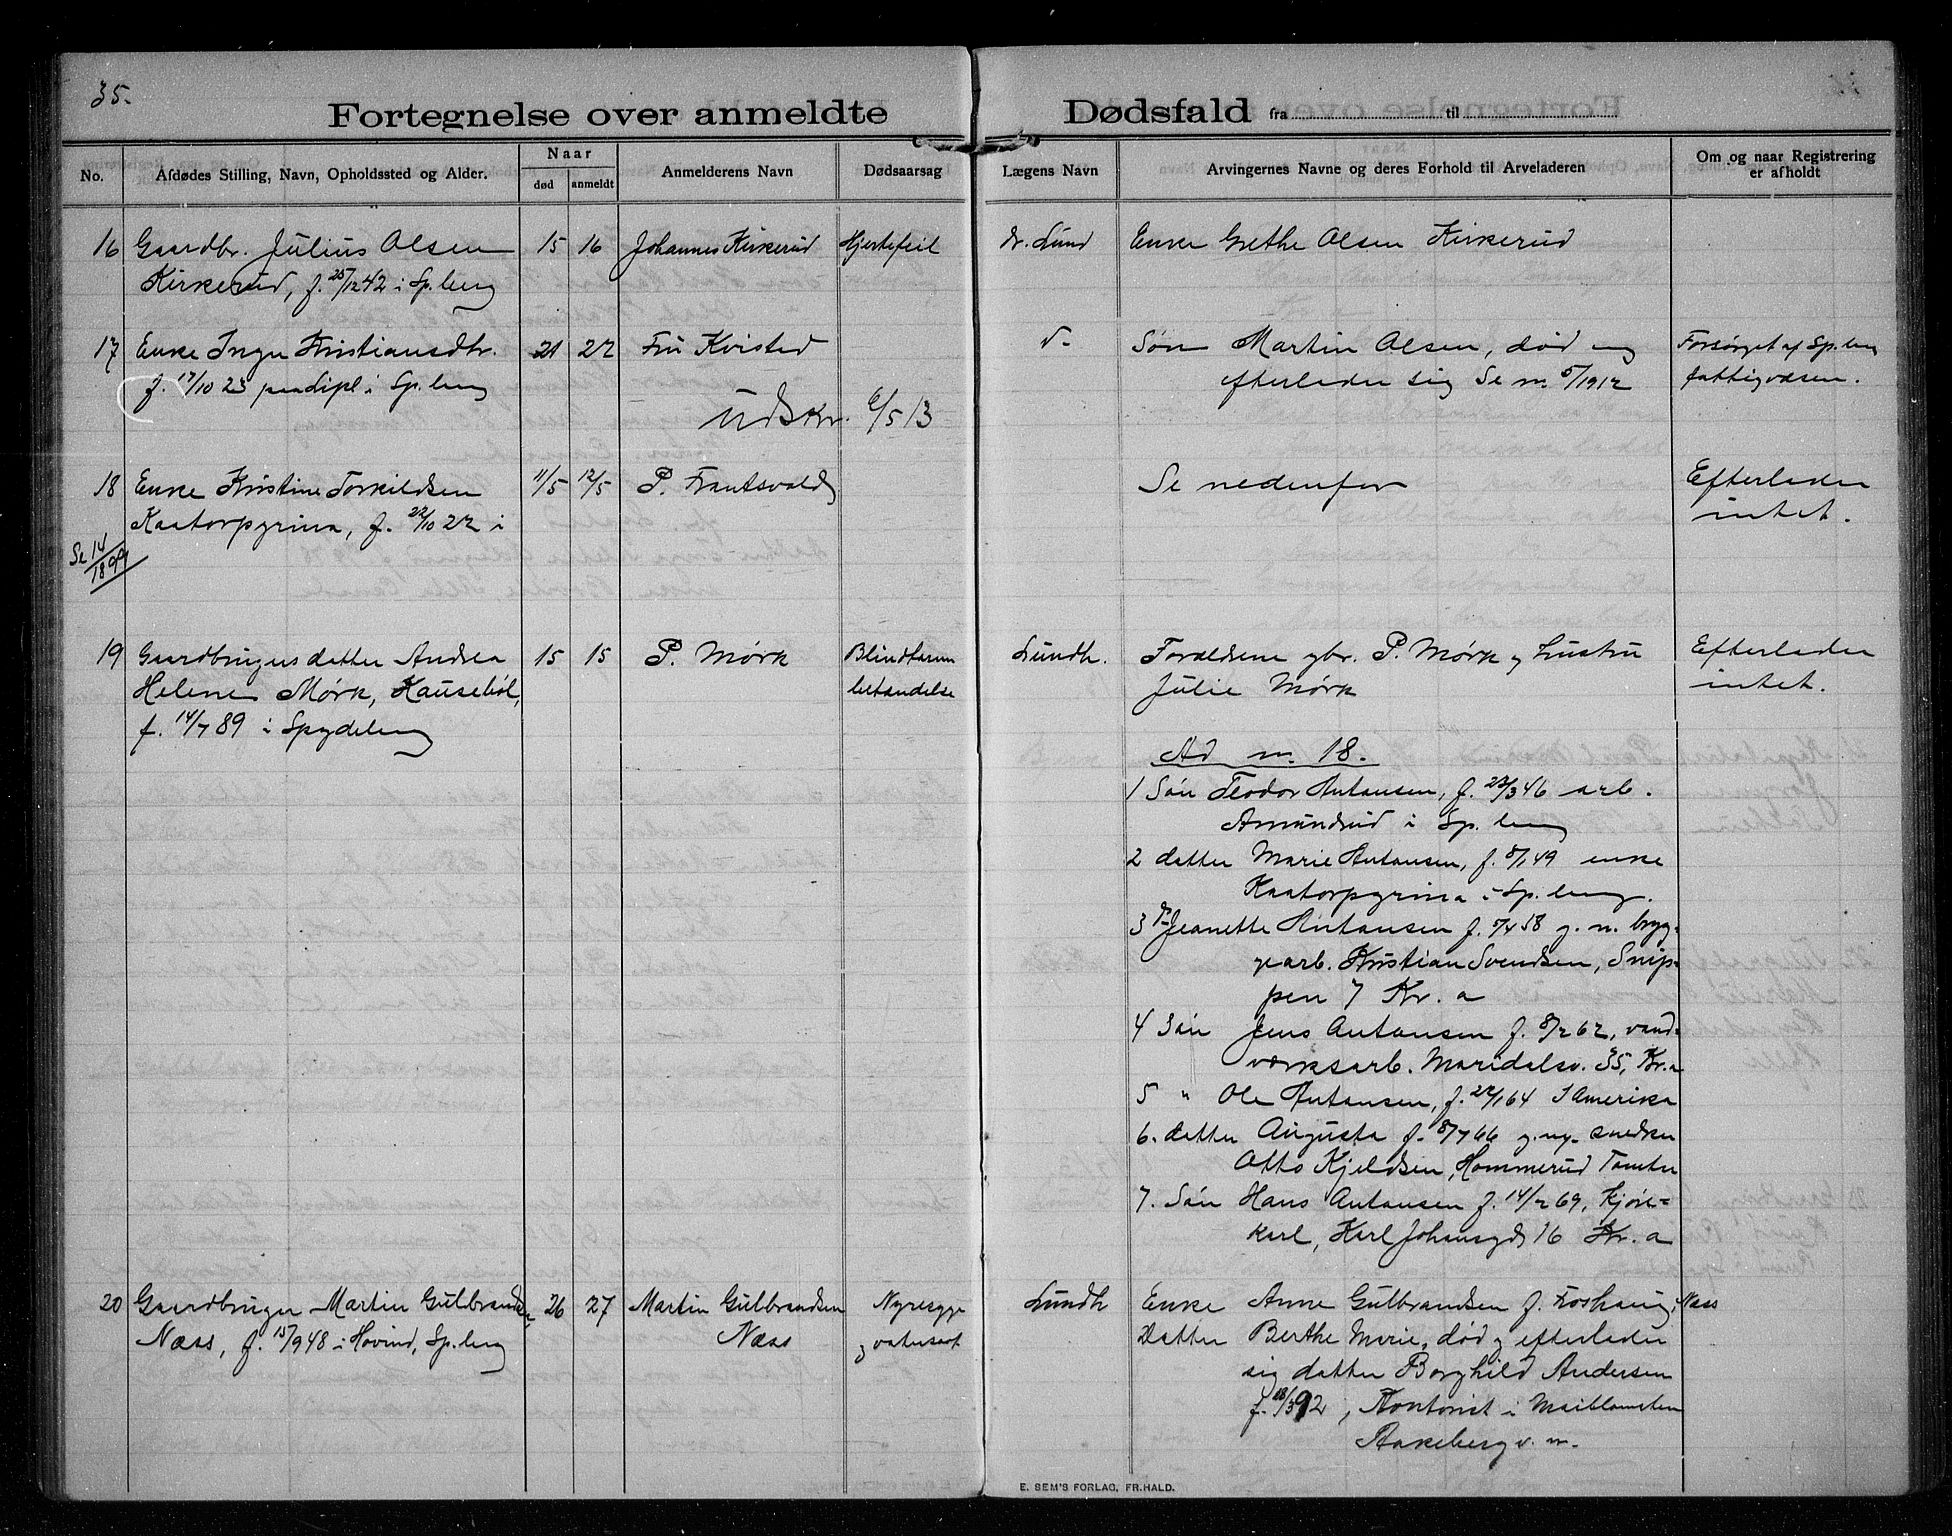 35.
Fortegnelse over anmeldte Dødsfald fra til
No.
Afdødes Stilling, Navn, Opholdssted og Alder.
Naar
død
anmeldt
Anmelderens Navn
Dødsaarsag
Lægens Navn
Arvingernes Navne og deres Forhold til Arveladeren
Om og naar Registrering
er afholdt
16 Gaardbr. Julius Olsen 15 16 Johannes Kirkerud Hjertefeil dr. Lund Enke Grethe Olsen Kirkerud
Kirkerud, f. 25/12 42 i Sp.berg
17 Enke Inger Kristiansdtr. 21 22 Fru Kvisted d- Søn Martin Olsen, død og Forsørget af Sp.berg
f. 17/10 23 i Sp.berg efterlader sig Se nr. 5/1912 fattigvæsen.
Udskr. 6/5 13
18 Enke Kristine Torkildsen 11/5 12/5 P. Frantsvold Se nedenfor Efterlader
Kaatorpgrina, f. 22/10 22 i intet.
Se 14/1899
19 Gaardbrugersdatter Andrea 15 15 P. Mørk Blindtarm Lundh. Forældrene gbr. P. Mørk og hustru Efterlader
Helene Mørk, Kausebøl, betændelse Julie Mørk intet.
f. 14/7 89 i Spydeberg
Ad nr. 18.
1 Søn Teodor Antonsen, f. 23/3 46 arb.
Amundrud i Sp.berg
2 datter Marie Antonsen, f. 8/1 49 enke
Kaatorpgrina i Sp.berg.
3 d- Jeanette Antonsen f. 5/4 58 g. m. bryg-
garb. Kristian Svendsen, Snip-
pen 7 Kr. a
4 Søn Jens Antonsen f. 8/2 62, vand-
værksarb. Maridalsv. 35, Kr. a
5 " Ole Antonsen, f. 22/1 64 i Amerika
6. datter Augusta f. 8/7 66 g. m. snedker
Otto Kjeldsen, Hommerud Tomter
7. Søn Hans Antonsen f. 14/2 69, kjøre-
karl, Karl Johansgd 16 Kr. a
20 Gaardbruger Martin Gulbrandsen, 26 27 Martin Gulbrandsen Nyresyge Lundh Enke Anne Gulbrandsen f. Foshaug, Næss
Næss, f. 15/9 48 i Hovind, Sp.berg Næss og vatersot Datter Berthe Marie, død og efterlader
sig datter Borghild Andersen
f. 28/3 92, Kontorist i Maiblomsten
Aakebergv. nr.
E. SEM'S FORLAG, FR.HALD.